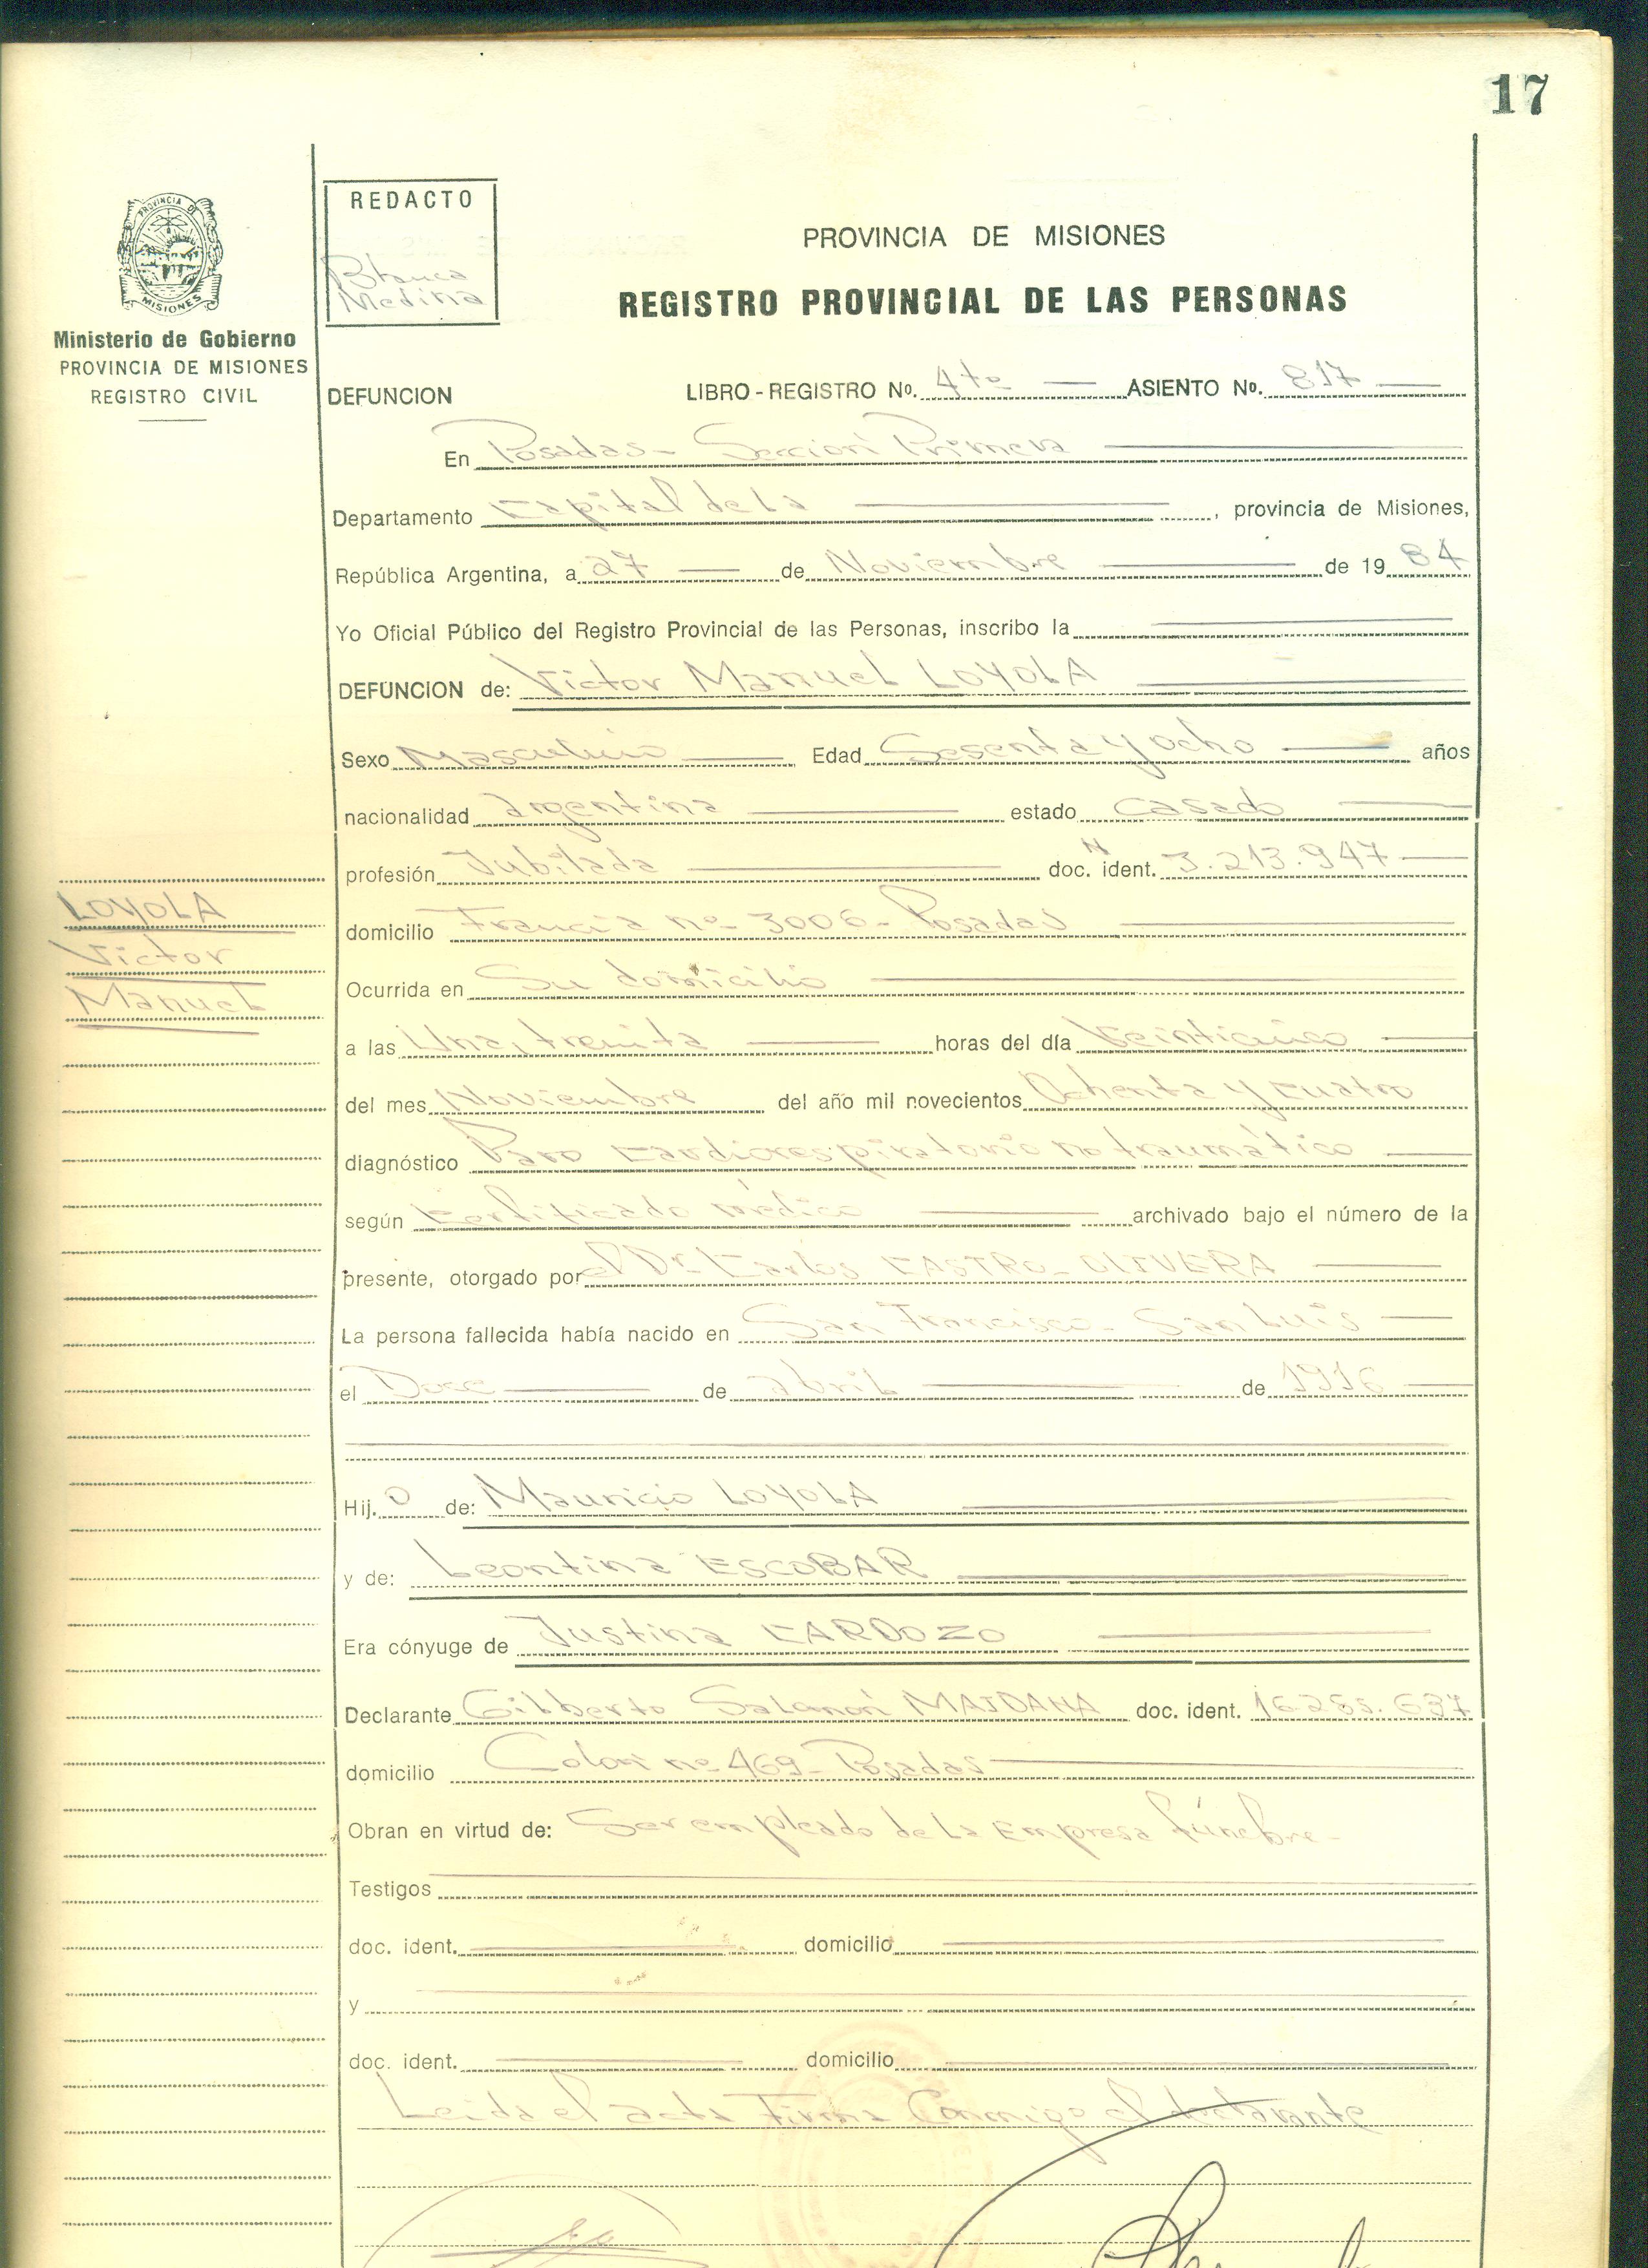 17
PROVINCIA DE
MISIONES
Ministerio de Gobierno
PROVINCIA DE MISIONES
REGISTRO CIVIL
REDACTO
Blanca
Medina
PROVINCIA DE MISIONES
REGISTRO PROVINCIAL DE LAS PERSONAS
DEFUNCION LIBRO - REGISTRO Nº. 4to ASIENTO Nº. 817
En Posadas - Sección Primera
Departamento Capital de la , provincia de Misiones,
República Argentina, a 27 de Noviembre de 19 84
Yo Oficial Público del Registro Provincial de las Personas, inscribo la
DEFUNCION de: Victor Manuel LOYOLA
Sexo Masculino Edad Sesenta y ocho años
nacionalidad argentina estado casado
profesión Jubilada doc. N ident. 3.213.947
LOYOLA
Victor
Manuel
domicilio Francia nº 3006 - Posadas
Ocurrida en Su domicilio
a las Una, treinta horas del día Veinticinco
del mes Noviembre del año mil novecientos Ochenta y cuatro
diagnóstico Paro cardiorespiratorio no traumático
según Certificado médico archivado bajo el número de la
presente, otorgado por el Dr. Carlos CASTRO - OLIVERA
La persona fallecida había nacido en San Francisco - San Luis
el Doce de abril de 1916
Hij. o de: Mauricio LOYOLA
y de: Leontina ESCOBAR
Era cónyuge de Justina CARDOZO
Declarante Gilberto Salomón MAIDANA doc. ident. 16.255.637
domicilio Colon nº 469 - Posadas
Obran en virtud de: Ser empleado de la Empresa fúnebre -
Testigos
doc. ident. domicilio
y
doc. ident. domicilio
Leida el acta Firma Conmigo el declarante